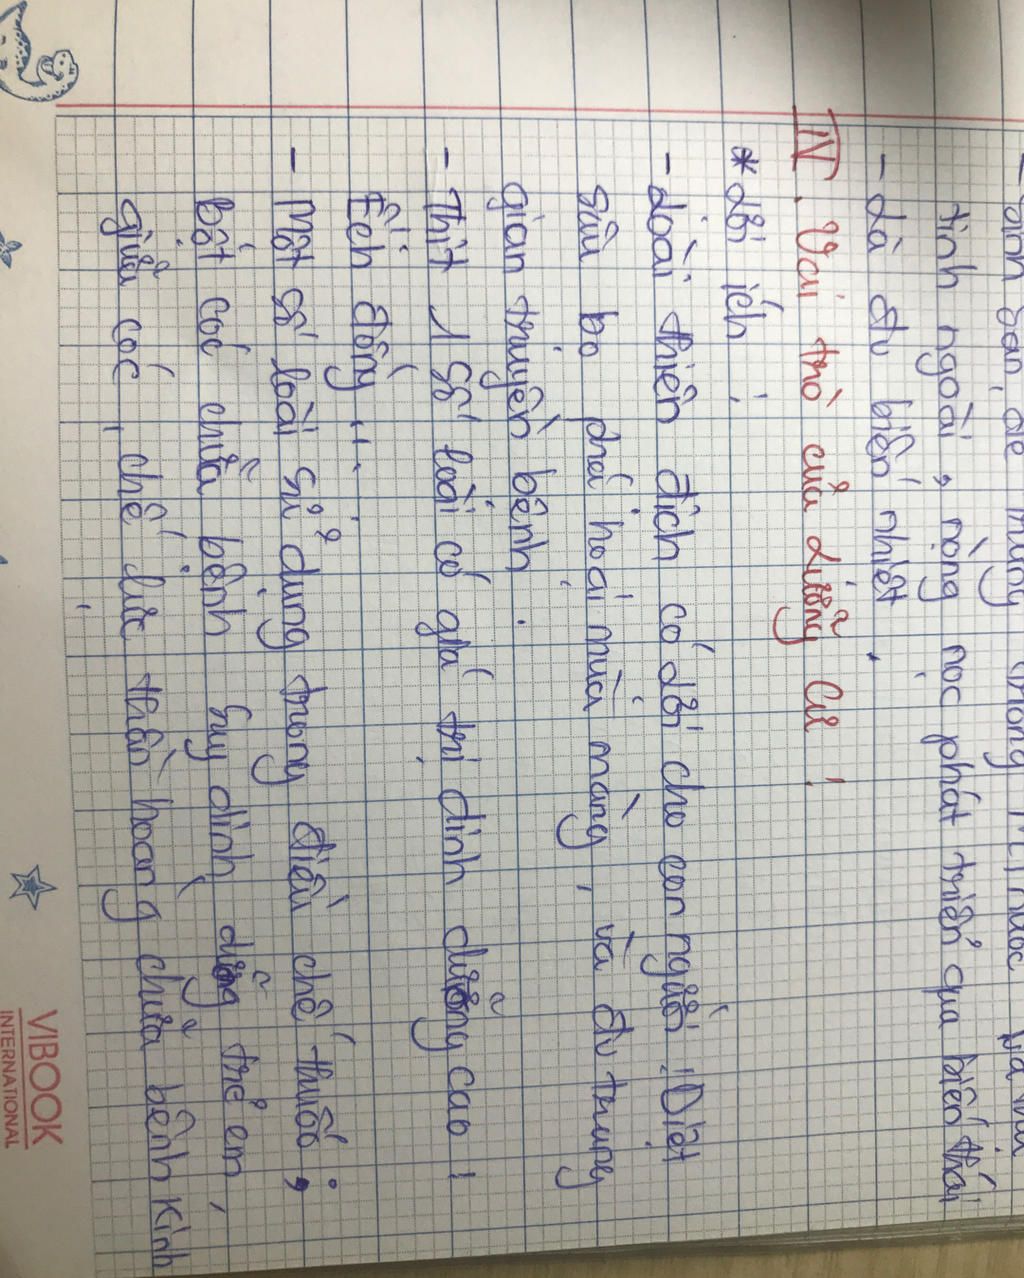 tinh ngoài, nòng nọc phát triển qua biến thái
- Là đv biến nhiệt.
IV. Vai trò của Lưỡng Cư:
* Lợi ích:
- Loài thiên địch có lợi cho con người: Diệt
sâu bọ phá hoại mùa màng, và đv trung
gian truyền bệnh.
- Thịt 1 số loài có giá trị dinh dưỡng cao:
Ếch đồng...
- Một số loài sử dụng trong điều chế thuốc:
bột cóc chữa bệnh suy dinh dưỡng trẻ em,
giữa cóc, chế lục thần hoàng chữa bệnh kinh
VIBOOK
INTERNATIONAL